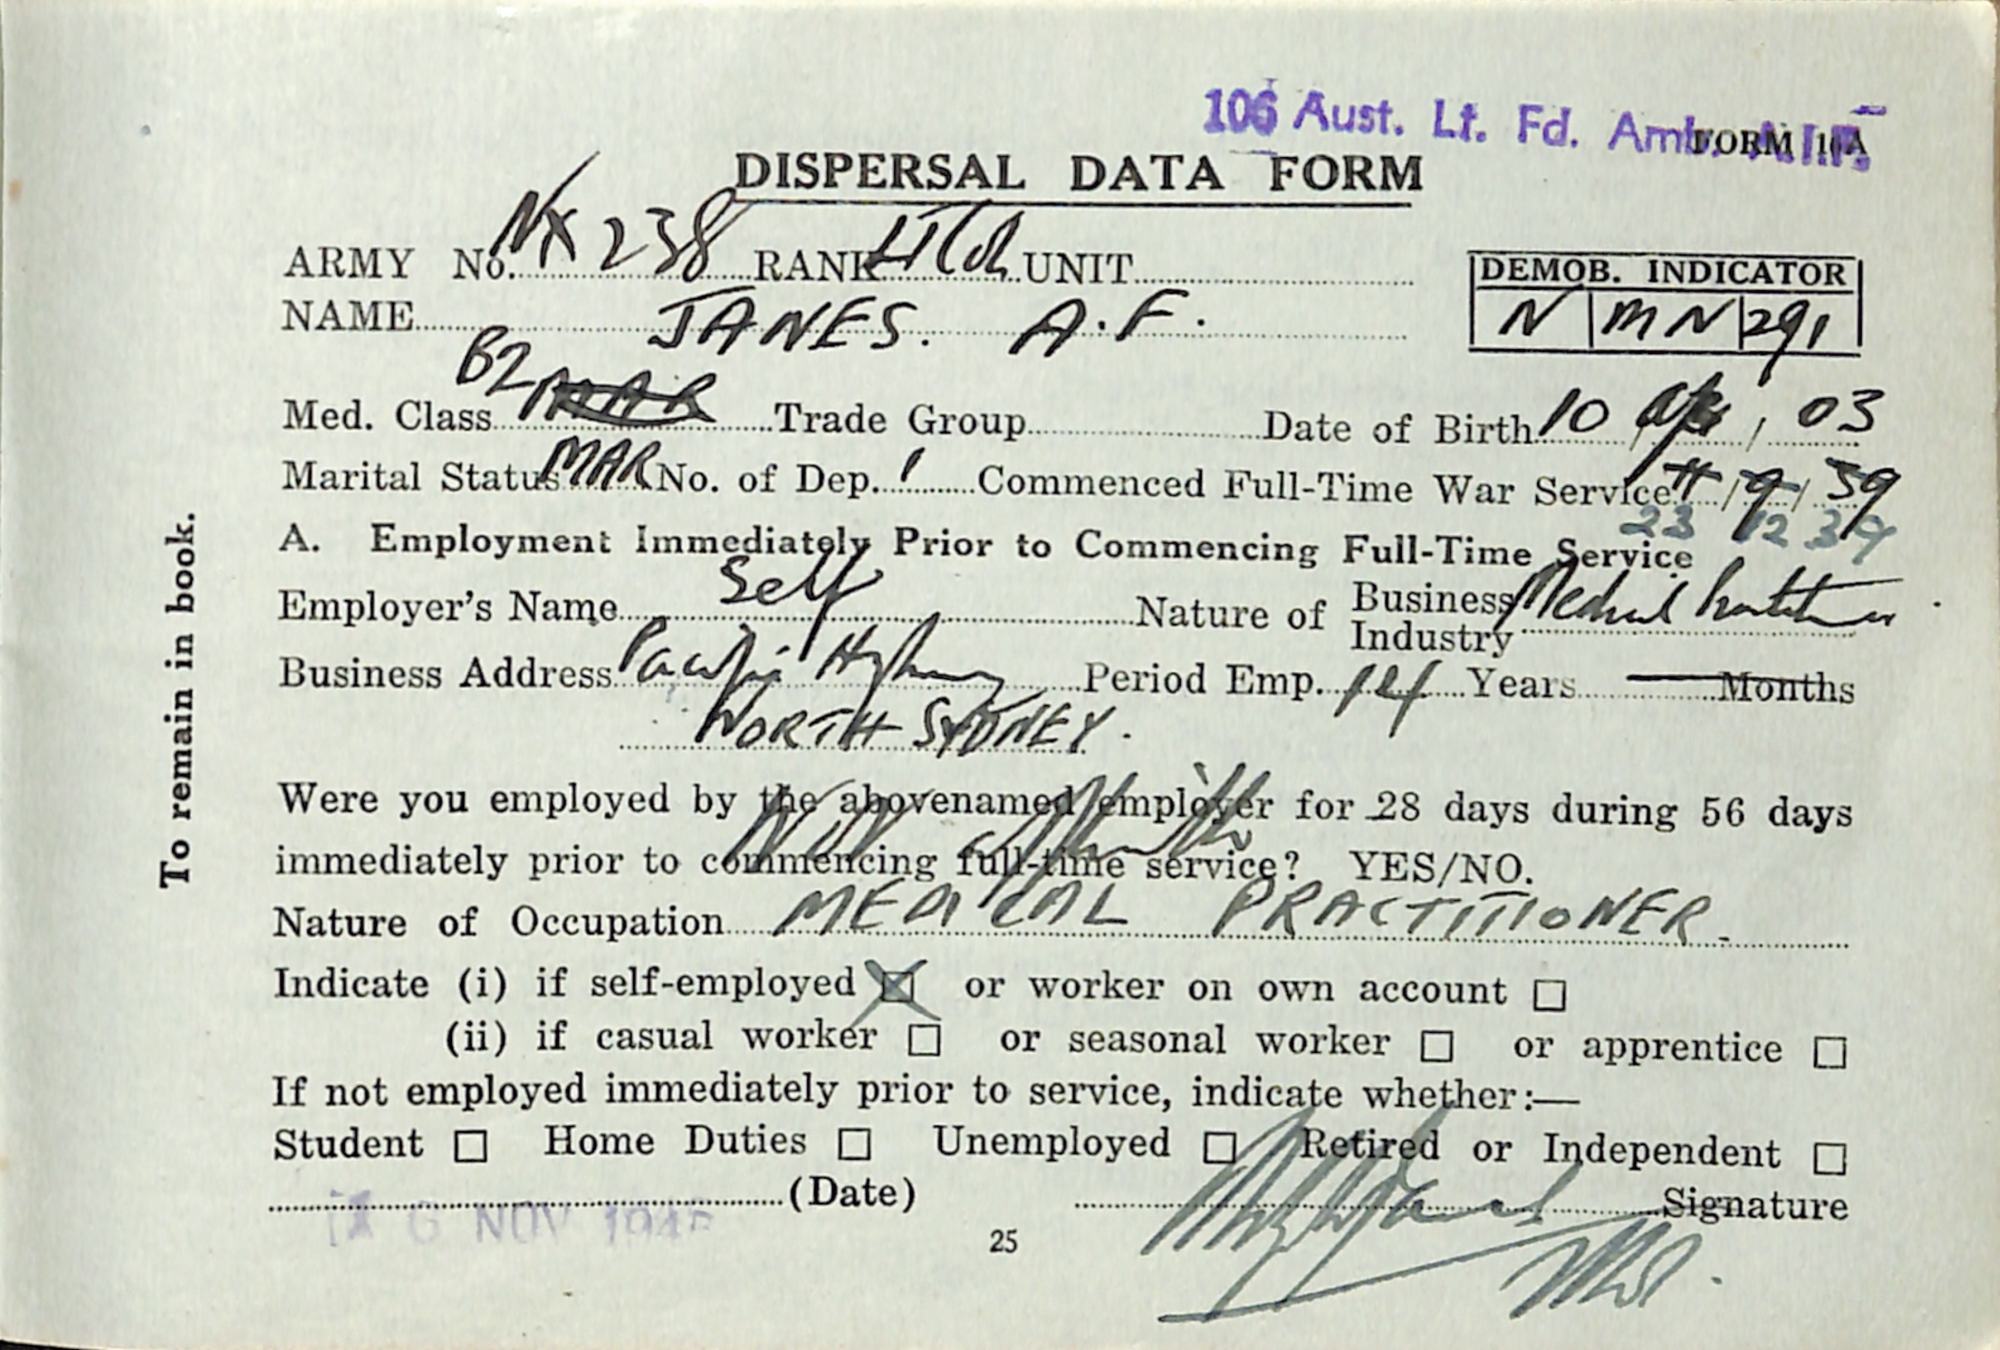 106 Aust. Lt. Fd. Amb. A.I.F.
FORM 10A
DISPERSAL DATA FORM
ARMY No. NX 238 RANK Lt Col UNIT
DEMOB. INDICATOR
NAME JANES. A.F.
N MN 291
B2
Med. Class MAR Trade Group Date of Birth 10 / Apr / 03
Marital Status MAR No. of Dep. 1 Commenced Full-Time War Service / 9 / 39
23 12 39
A. Employment Immediately Prior to Commencing Full-Time Service
Employer's Name Self Nature of Business Industry Medical
Business Address Pacific Highway Period Emp. 14 Years Months
NORTH SYDNEY.
Were you employed by the abovenamed employer for 28 days during 56 days
immediately prior to commencing full-time service? YES/NO.
Not
Nature of Occupation MEDICAL PRACTITIONER.
Indicate (i) if self-employed X or worker on own account
(ii) if casual worker or seasonal worker or apprentice
If not employed immediately prior to service, indicate whether:—
Student Home Duties Unemployed Retired or Independent
(Date) Signature
6 NOV 194
25
To remain in book.